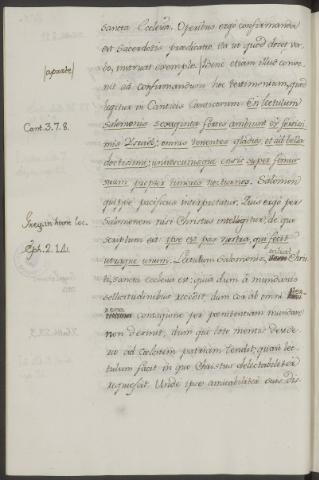 sancta Ecclesia. Operibus ergo confirmanda
est Sacerdotis prædicatio ita ut quod docet ver-
bo, instruat exemplo. Benè etiam illud conve-
(aparte)
nit ad confirmandum hoc testimonium, quod
legitur in Canticis Canticorum: En lectulum
Cant. 3. 7. 8.
Salomonis sexaginta fortes ambiunt ex fortissi-
mis Israel; omnes tenentes gladios, et ad bella
doctissimi; uniuscuiusque ensis super femur
suum propter timores nocturnos. Salomon
quippe pacificus interpretatur. Quis ergo per
Salomonem nisi Christus intelligitur, de quo
Greg. in hunc loc.
scriptum est: Ipse est pax vestra, qui fecit
Eph. 2. 14.
utraque unum. Lectulum Salomonis, Chris-
ti, sancta Ecclesia est: quia dum à mundanis
sollicitudinibus recedit, dum cor ab omni
contagione per pœnitentiam mundare
non desinit, dum que tota mente deside-
rio ad cœlestem patriam tendit; quasi lec-
tulum facit in quo Christus delectabiliter
requiescat. Unde ipse amicabiliter suis dis-